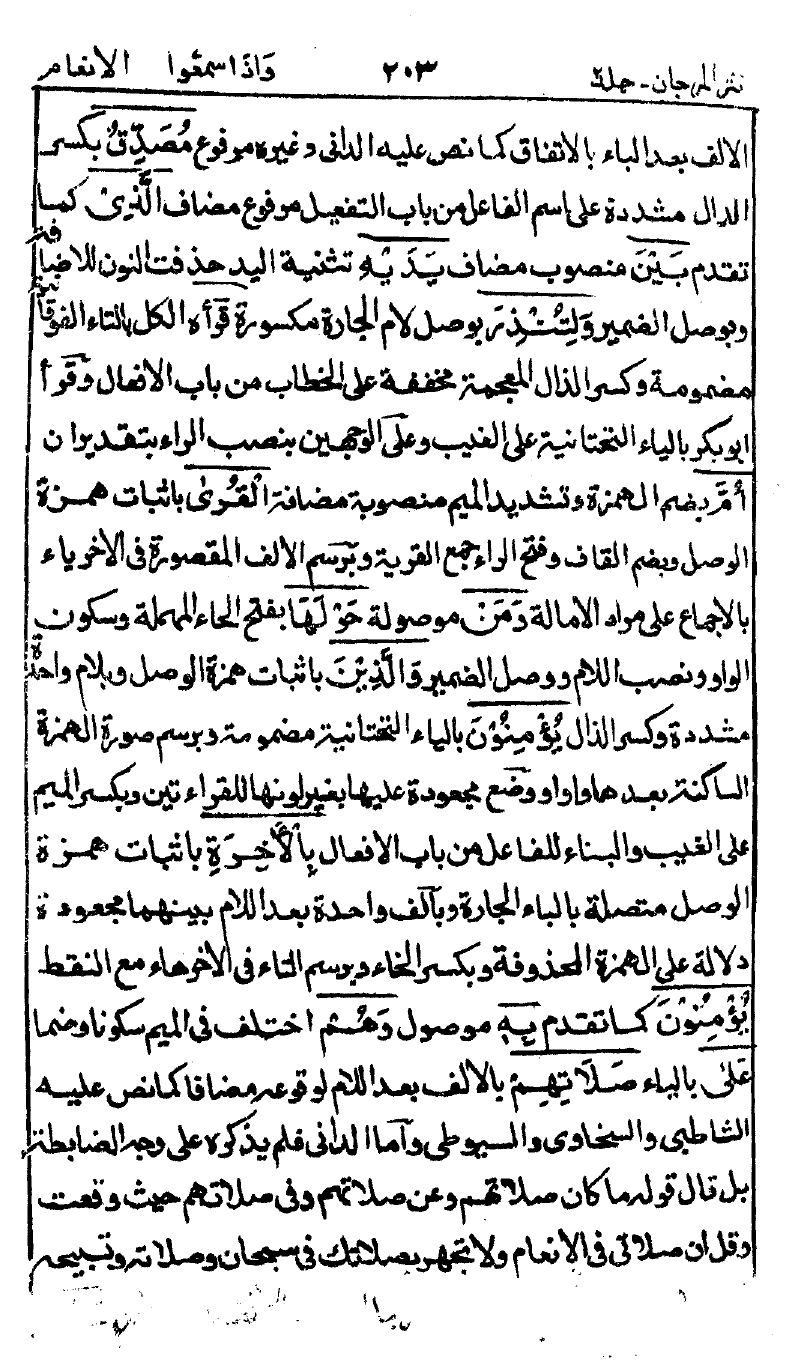 نثر المرجان - جملة ٢٠٣ وَاذَا سمعوا الانعام
الالف بعد الباء بالاتفاق كما نص عليه الدانى وغيره مرفوع مُصَدِّقُ بكسر
الدال مشددة على اسم الفاعل من باب التفعيل مرفوع مضاف الَّذِىْ كما
تقدم بَيْنَ منصوب مضاف يَدَيْهِ تثنية اليد حذفت النون للاضافة
وبوصل الضمير وَلِتُنْذِرَ بوصل لام الجارة مكسورة قرأه الكل بالتاء الفوقانية
مضمومة وكسر الذال المعجمة مخففة على الخطاب من باب الافعال وقرأ
ابو بكر بالياء التحتانية على الغيب وعلى الوجهين بنصب الراء بتقدير ان
اُمَّ بضم الهمزة وتشديد الميم منصوبة مضافة الْقُرىٰ باثبات همزة
الوصل وبضم القاف وفتح الراء جمع القرية وبرسم الالف المقصورة فى الاخر ياء
بالاجماع على مراد الامالة وَمَنْ موصولة حَوْلَهَا بفتح الحاء المهملة وسكون
الواو ونصب اللام ووصل الضمير وَالَّذِيْنَ باثبات همزة الوصل وبلام واحدة
مشددة وكسر الذال يُؤْمِنُوْنَ بالياء التحتانية مضمومة وبرسم صورة الهمزة
الساكنة بعدها واوا ووضع مجعودة عليها بغير لونها للقراءتين وبكسر الميم
على الغيب والبناء للفاعل من باب الافعال بِالْاٰخِرَةِ باثبات همزة
الوصل متصلة بالباء الجارة وبآلف واحدة بعد اللام بينهما مجعودة
دلالة على الهمزة المحذوفة وبكسر الخاء وبرسم التاء فى الاخر هاء مع النقط
يُؤْمِنُوْنَ كما تقدم بِهٖ موصول وَهُمْ اختلف فى الميم سكونا وضما
عَلىٰ بالياء صَلَاتِهِمْ بالالف بعد اللام لوقوعه مضافا كما نص عليه
الشاطبى والسخاوى والسيوطى وآما الدانى فلم يذكره على وجه الضابطة
بل قال قوله ما كان صلاتهم وعن صلاتهم وفى صلاتهم حيث وقعت
وقل ان صلاتى فى الانعام ولا تجهر بصلاتك فى سبحان وصلاته وتسبيحه